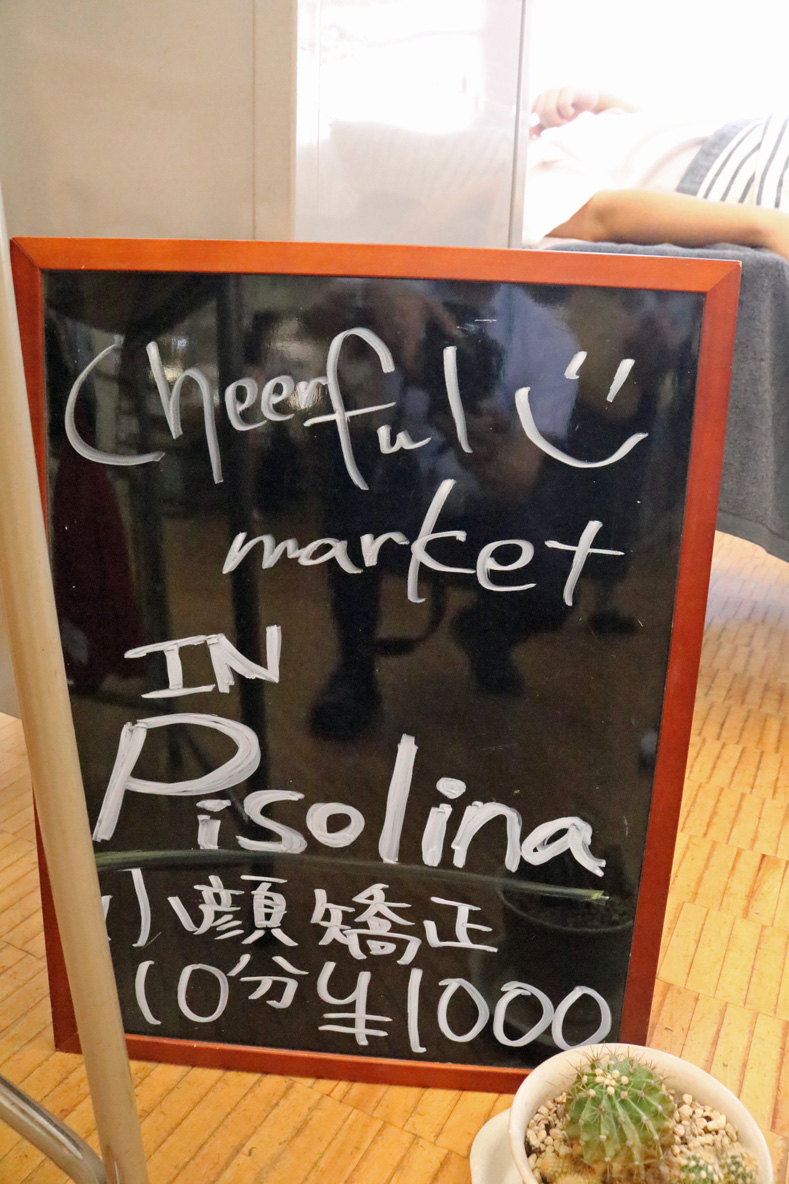 Cheerful
market
IN
Pisolina
小顔矯正
10分¥1000